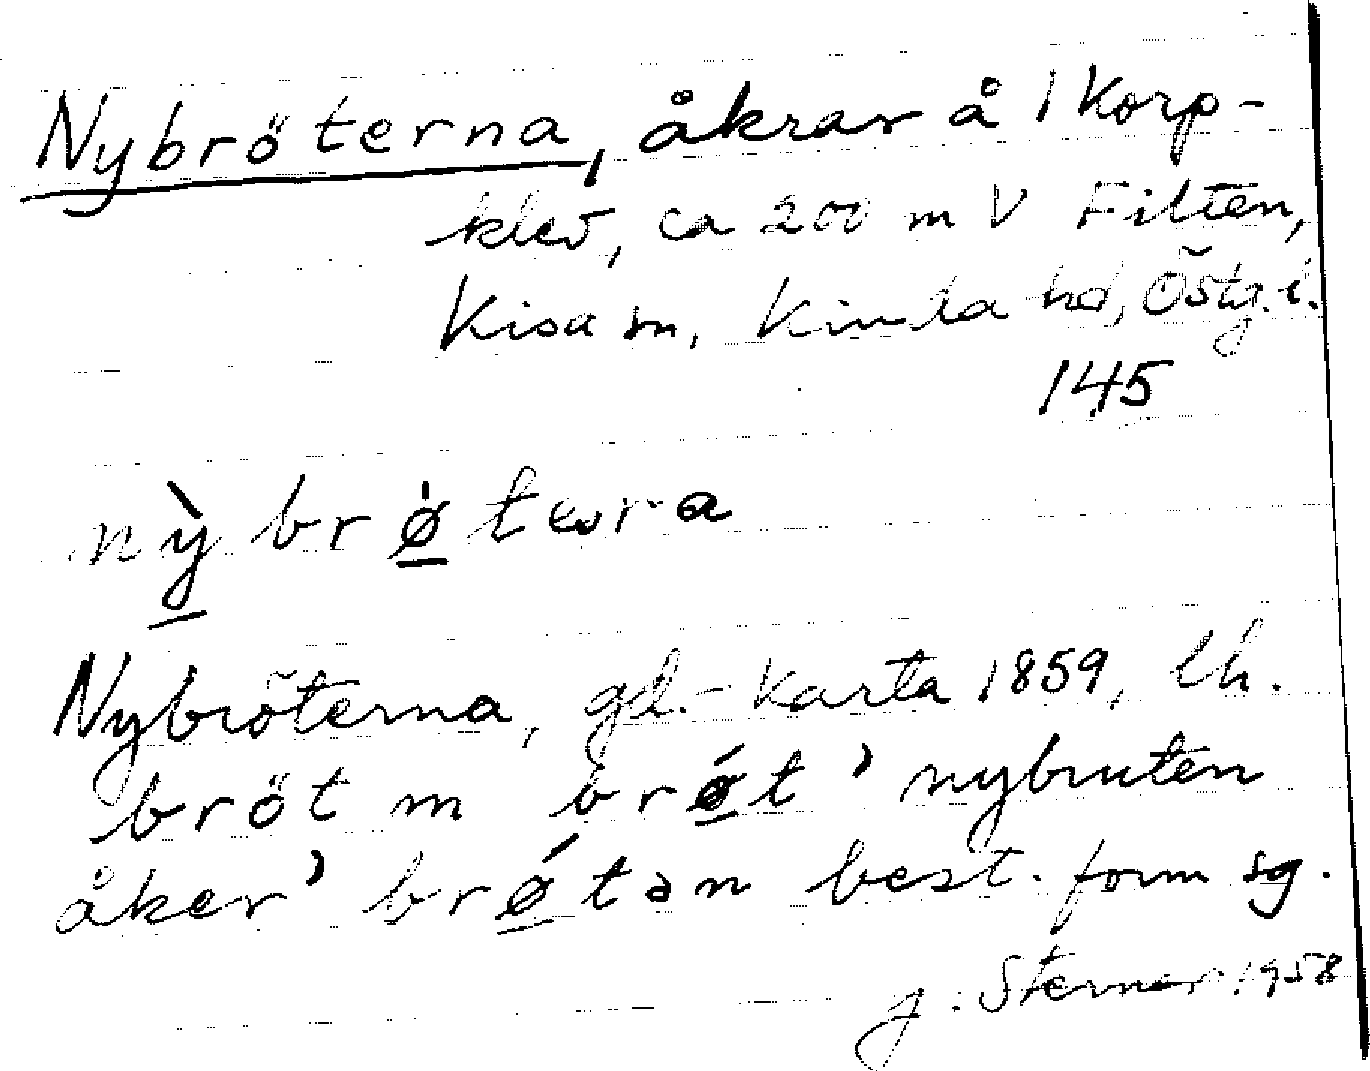 Nybröterna, åkrar å 1 Korp-
klev, ca 200 m V Filten,
Kisa sn, Kinda hd, Östg. l.
145
nỳ brø̀ terna
Nybröterna, gd.-karta 1859, lh.
bröt m brǿt ' nybruten
åker' brǿtən best. form sg.
J. Sterner 1958